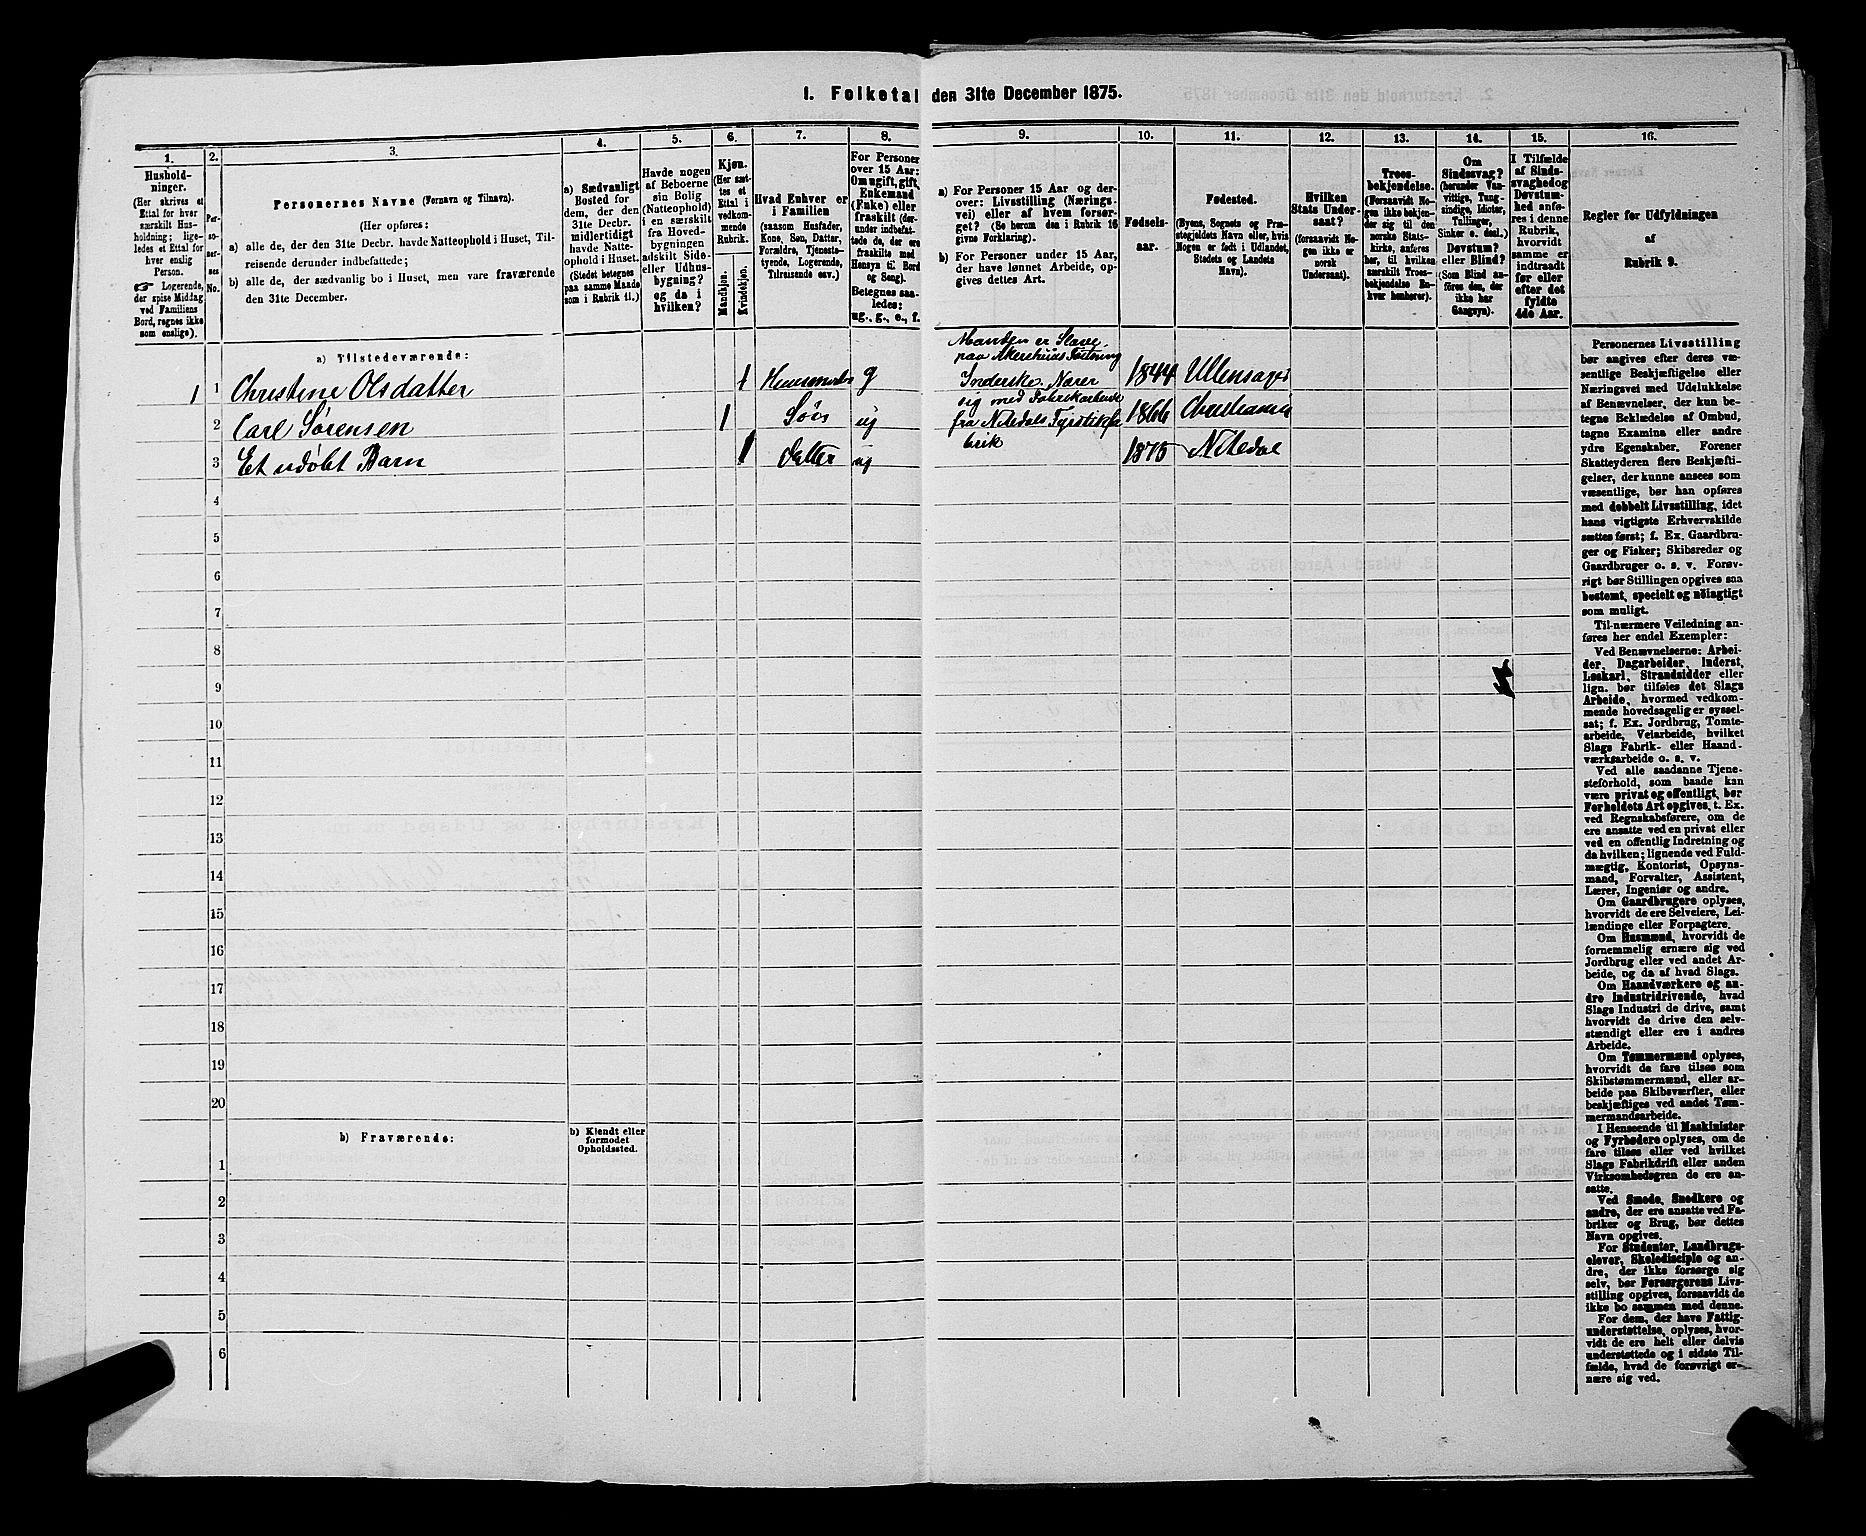 1. Folketal den 31te December 1875.
1.
2.
3.
4.
5.
6.
7.
8.
9.
10.
11.
12.
13.
14.
15.
16.
Hushold-
ninger.
(Her skrives et
Ettal for hver
særskilt Hus-
holdning; lige-
ledes et Ettal for
hver enslig
Person.
☞ Logerende,
der spise Middag
ved Familiens
Bord, regnes ikke
som enslige).
Per-
so-
ner-
nes
No.
Personernes Navne (Fornavn og Tilnavn).
(Her opføres:
a) alle de, der den 31te Decbr. havde Natteophold i Huset, Til-
reisende derunder indbefattede;
b) alle de, der sædvanlig bo i Huset, men vare fraværende
den 31te December.
a) Sædvanligt
Bosted for
dem, der den
31te Decbr.
midlertidigt
havde Natte-
ophold i Huset.
(Stedet betegnes
paa samme Maade
som i Rubrik 11.)
Havde nogen
af Beboerne
sin Bolig
(Natteophold)
i en særskilt
fra Hoved-
bygningen
adskilt Side-
eller Udhus-
bygning?
og da i
hvilken?
Kjøn.
(Her sæt-
tes et
Ettal i
vedkom-
mende
Rubrik.
Mandkjøn.
Kvindekjøn.
Hvad Enhver er
i Familien
(saasom Husfader,
Kone, Søn, Datter,
Forældre, Tjeneste-
tyende, Logerende,
Tilreisende osv.)
For Personer
over 15 Aar:
Om ugift, gift,
Enkemand
(Enke) eller
fraskilt (der-
under indbefat-
tede de, der ere
fraskilte med
Hensyn til Bord
og Seng).
Betegnes saa-
ledes:
ug., g., e., f.
a) For Personer 15 Aar og der-
over: Livsstilling (Nærings-
vei) eller af hvem forsør-
get? (Se herom den i Rubrik 16
givne Forklaring).
b) For Personer under 15 Aar,
der have lønnet Arbeide, op-
gives dettes Art.
Fødsels-
aar.
Fødested.
(Byens, Sognets og Præ-
stegjeldets Navn eller, hvis
Nogen er født i Udlandet,
Stedets og Landets
Navn).
Hvilken
Stats Under-
saat?
(forsaavidt No-
gen ikke er
norsk
Undersaat).
Troes-
bekjendelse.
(Forsaavidt No-
gen ikke bekjen-
der sig til den
norske Stats-
kirke, anføres
her, til hvilken
særskilt Troes-
bekjendelse En-
hver henhører).
Om
Sindssvag?
(herunder Van-
vittige, Tung-
sindige, Idioter,
Tullinger,
Sinker o. desl.)
Døvstum?
eller Blind?
(Som Blind an-
føres den, der
ikke har
Gangsyn).
I Tilfælde
af Sinds-
svaghed og
Døvstum-
hed anfø-
res i denne
Rubrik,
hvorvidt
samme er
indtraadt
før eller
efter det
fyldte
4de Aar.
Regler for Udfyldningen
af
Rubrik 9.
a) Tilstedeværende:
Manden er Slave
paa Akershuus Fæstning
1 1 Christine Olsdatter 1 g Inderske. Nærer 1844
sig med Fabrikarbeide
2 Carl Sørensen 1 Søn ug fra Nitedals Tyrstikfa 1866 Christiania
brik
3 Et udøbt Barn 1 Datter ug 1875 Nitedal
4
5
6
7
8
9
10
11
12
13
14
15
16
17
18
19
20
b) Fraværende:
b) Kjendt eller
formodet
Opholdssted.
1
2
3
4
5
6
Personernes Livsstilling
bør angives efter deres væ-
sentlige Beskjæftigelse eller
Næringsvei med Udelukkelse
af Benævnelser, der kun be-
tegne Beklædelse af Ombud,
tagne Examina eller andre
ydre Egenskaber. Forener
Skatteyderen flere Beskjæfti-
gelser, der kunne ansees som
væsentlige, bør han opføres
med dobbelt Livsstilling, idet
hans vigtigste Erhvervskilde
sættes først; f. Ex. Gaardbru-
ger og Fisker; Skibsreder og
Gaardbruger o. s. v. Forøv-
rigt bør Stillingen opgives saa
bestemt, specielt og nøiagtigt
som muligt.
Til nærmere Veiledning an-
føres her endel Exempler:
Ved Benævnelserne: Arbei-
der, Dagarbeider, Inderst,
Løskarl, Strandsidder eller
lign. bør tilføies det Slags
Arbeide, hvormed vedkom-
mende hovedsagelig er syssel-
sat; f. Ex. Jordbrug, Tomte-
arbeide, Veiarbeide, hvilket
Slags Fabrik- eller Haand-
værksarbeide o. s. v.
Ved alle saadanne Tjene-
steforhold, som baade kan
være privat og offentligt, bør
Forholdets Art opgives, t. Ex.
ved Regnskabsførere, om de
ere ansatte ved en privat eller
ved en offentlig Indretning og
da hvilken; lignende ved Fuld-
mægtig, Kontorist, Opsyns-
mand, Forvalter, Assistent,
Lærer, Ingeniør og andre.
Om Gaardbrugere oplyses,
hvorvidt de ere Selveiere, Lei-
lændinge eller Forpagtere.
Om Husmænd, hvorvidt de
fornemmelig ernære sig ved
Jordbrug eller ved andet Ar-
beide, og da af hvad Slags.
Om Haandværkere og an-
dre Industridrivende, hvad
Slags Industri de drive, samt
hvorvidt de drive den selv-
stændigt eller ere i andres
Arbeide.
Om Tømmermænd oplyses,
hvorvidt de fare tilsøs som
Skibstømmermænd, eller ar-
beide paa Skibsværfter, eller
beskjæftiges ved andet Tøm-
mermandsarbeide.
I Henseende til Maskinister
og Fyrbødere oplyses, om de
fare tilsøs eller ved hvilket
Slags Fabrikdrift eller anden
Virksomhedsgren de ere an-
satte.
Ved Smede, Snedkere og
andre, der ere ansatte ved Fa-
briker og Brug, bør dettes
Navn opgives.
For Studenter, Landbrugs-
elever, Skoledisciple og an-
dre, der ikke forsørge sig
selv, bør Forsørgerens Livs-
stilling opgives, forsaavidt de
ikke bo sammen med denne.
For dem, der have Fattig-
understøttelse, oplyses, hvor-
vidt de ere helt eller delvis
understøttede og i sidste Til-
fælde, hvad de forøvrigt er-
nære sig ved.